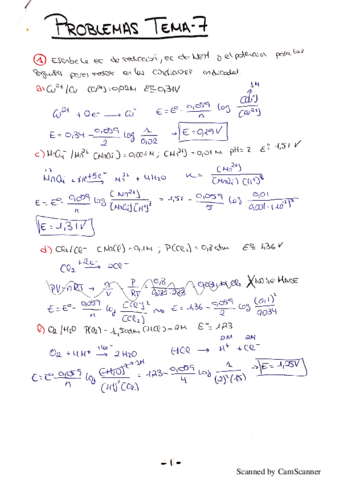 PROBLEMAS TEMA-7
① Escribe la ec de reducción, ec de Nernst y el potencial para los
siguientes pares redox en las condiciones indicadas.
a) Cu²⁺/Cu (Cu²⁺)=0,02M E°=0,34V
Cu²⁺ + 2e⁻ → Cu E = E° - 0,059/n log (Cu)/(Cu²⁺)
E = 0,34 - 0,059/2 log 1/0,02 → E = 0,29V
c) MnO₄⁻/Mn²⁺ (MnO₄⁻)=0,001M, (Mn²⁺)=0,01M pH=2 E°=1,51V
MnO₄⁻ + 8H⁺ + 5e⁻ → Mn²⁺ + 4H₂O
E = E° - 0,059/n log (Mn²⁺)/(MnO₄⁻)(H⁺)⁸ = 1,51 - 0,059/5 log 0,01
E = 1,31V
d) Cl₂/Cl⁻ (NaCl)=0,1M, P(Cl₂)=0,8atm E°=1,36V
Cl₂ + 2e⁻ → 2Cl⁻
PV = nRT → n/V P/RT NO SE HACE
E = E° - 0,059/n log (Cl⁻)²/(Cl₂) E = 1,36 - 0,059/2 log (0,1)²
O₂/H₂O P(O₂)=1,5atm (HCl)=2M E°=1,23
O₂ + 4H⁺ + 4e⁻ → 2H₂O HCl → H⁺ + Cl⁻
E = E° - 0,059/n log = 1,23 - 0,059/4 log E = 1,25V
-1-
Scanned by CamScanner